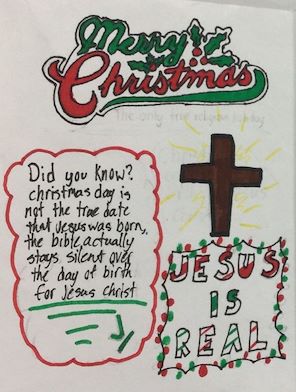 Merry
Christmas
The only true religious holiday
Did you know?
christmas day is
not the true date
that Jesus was born,
the bible actually
stays silent over
the day of birth
for Jesus christ
JESUS
IS
REAL